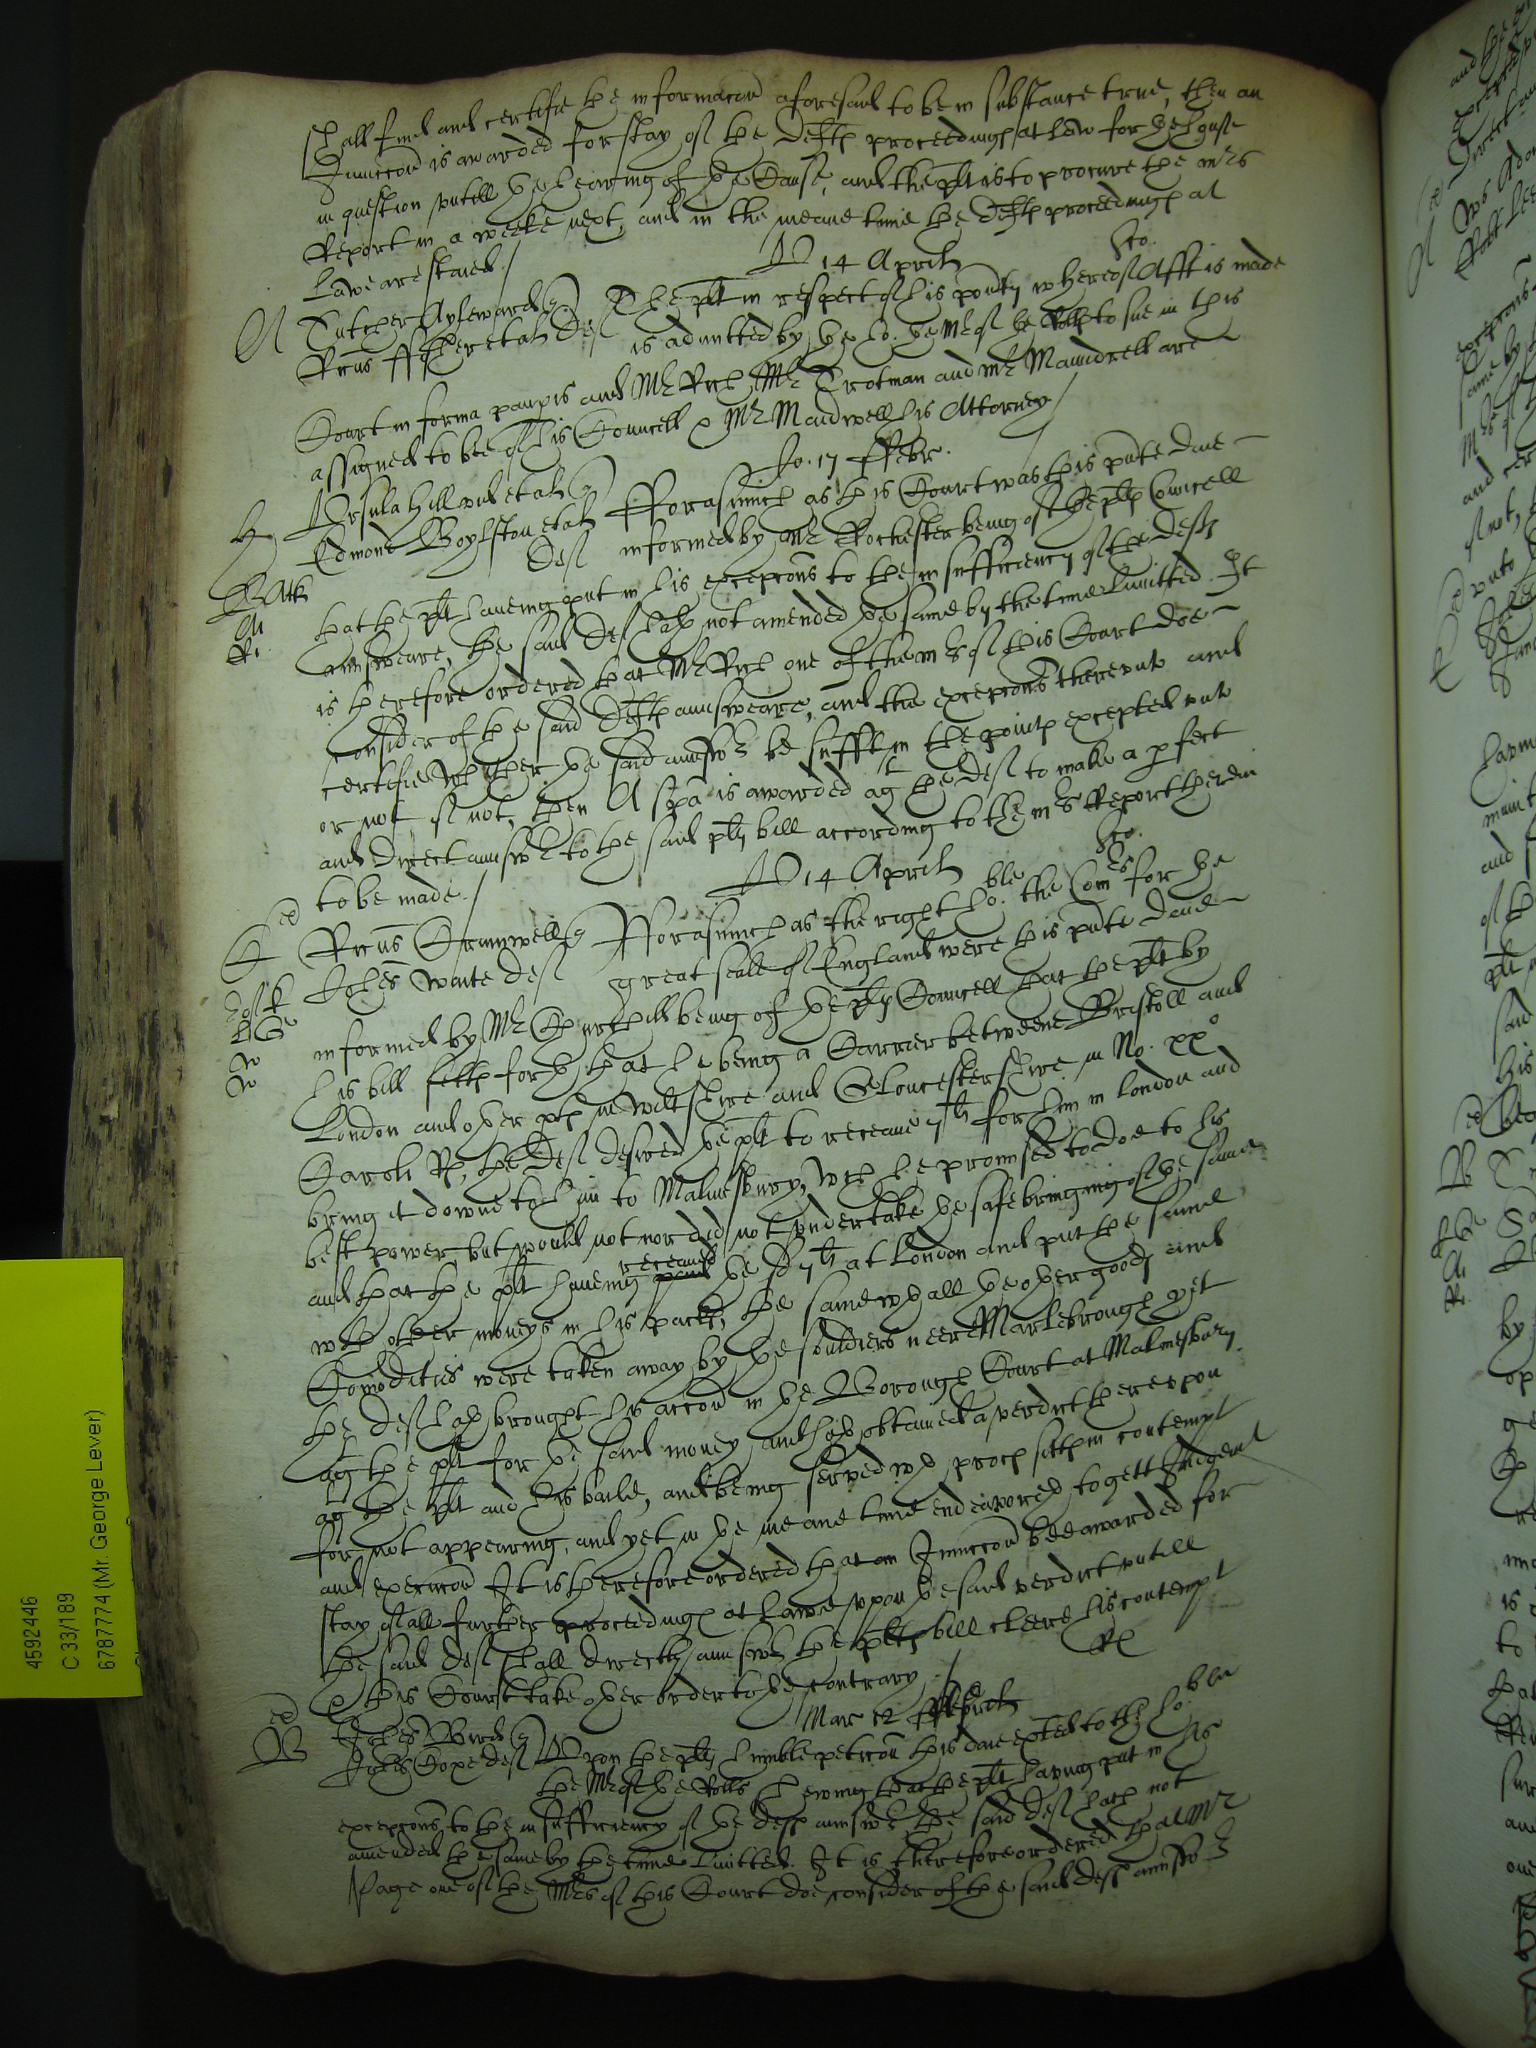 shall find and certifie the informacon aforesaid to be in substance true, then an
Iniuccon is awarded for stay of the Defts proceedings at law for the house
in question vntill the hearing of the Cause, and the plt is to procure the mrs
Report in a weeke next, and in the meane time the Defts proceedings at
Lawe are staied /
V 14 Aprilis
A Tutcher Ayleward The plt in respect of his povtie whereof Afft is made
Ricus ffletcher et al Def is admitted by the ho. the Mr of the Rolls to sue in this
Court in forma paupis and Mr Rich Mr Trotman and Mr Maundrell are
assigned to bee of his Councell & Mr Maidwell his Attorney /
Jo. 17 ffebr.
H Ursula Hill vid et al
Edmond Boylston et al Def fforasmuch as this Court was this pnte daie
informed by Mr Rochester being of the plts Councell
that the plt haueing put in his excepcons to the insufficiency of the defts
answeare, the said Def hath not amended the same by the time limitted. It
is therefore ordered that Mr Rich one of the mrs of this Court doe
consider of the said Defts answeare, and the excepcons therevnto and
certifie whether the said answr be suffit in the points excepted vnto
or not, if not, then A spa is awarded agt the Def to make a pfect
and direct answr to the said plts bill according to the mrs Report therein
to be made. /
V 14 Aprilis
C Ricus Crumwell fforasmuch as the right hoble the Comrs for the
Johes Waite def great seale of England were this pnte daie
informed by Mr Churchill being of the plts Councell that the plt by
his bill setts forth that he being a Carrier betweene Bristoll and
London and other pts in Wiltshire and Gloucestershire in No. xxo
Caroli Rs, the Def desired the plt to receaue 7li for him in London and
bring it downe to him to Malmesbury, wch he promised to doe to his
best power but would not nor did not vndertake the safe bringing of the same
and that the plt haueing receaued the sd 7li at London and put the same
with other moneys in his packs, the same wth all the other goods and
Comodities were taken away by the souldiers neere Marlebrough yet
the def hath brought his accon in the Borough Court at Malmesbury
agt the plt for the said money and hath obtained a verdict therevpon
agt the plt and his baile, and being serued wth proces sitts in contempt
for not appearing, and yet in the meane time endeavoreth to gett Judgemt
and execucon It is therefore ordered that an Iniuccon bee awarded for
stay of all further proceedings at lawe vpon the said verdict vntill
the said def shall directly answr the plts bill cleere his contempt
& this Court take other order to the contrary /
Mar 12
B Johes Bird
Johes Cope def Vpon the plts humble peticon this daie exted to the hoble
the Mr of the Rolls shewing that the plt having put in his
excepcons to the insufficiency of the defts answr the said def hath not
amended the same by the time limitted. It is therefore ordered that Mr
Page one of the Mrs of this Court doe consider of the said defts answr
4592446
C 33/189
6787774 (Mr. George Lever)